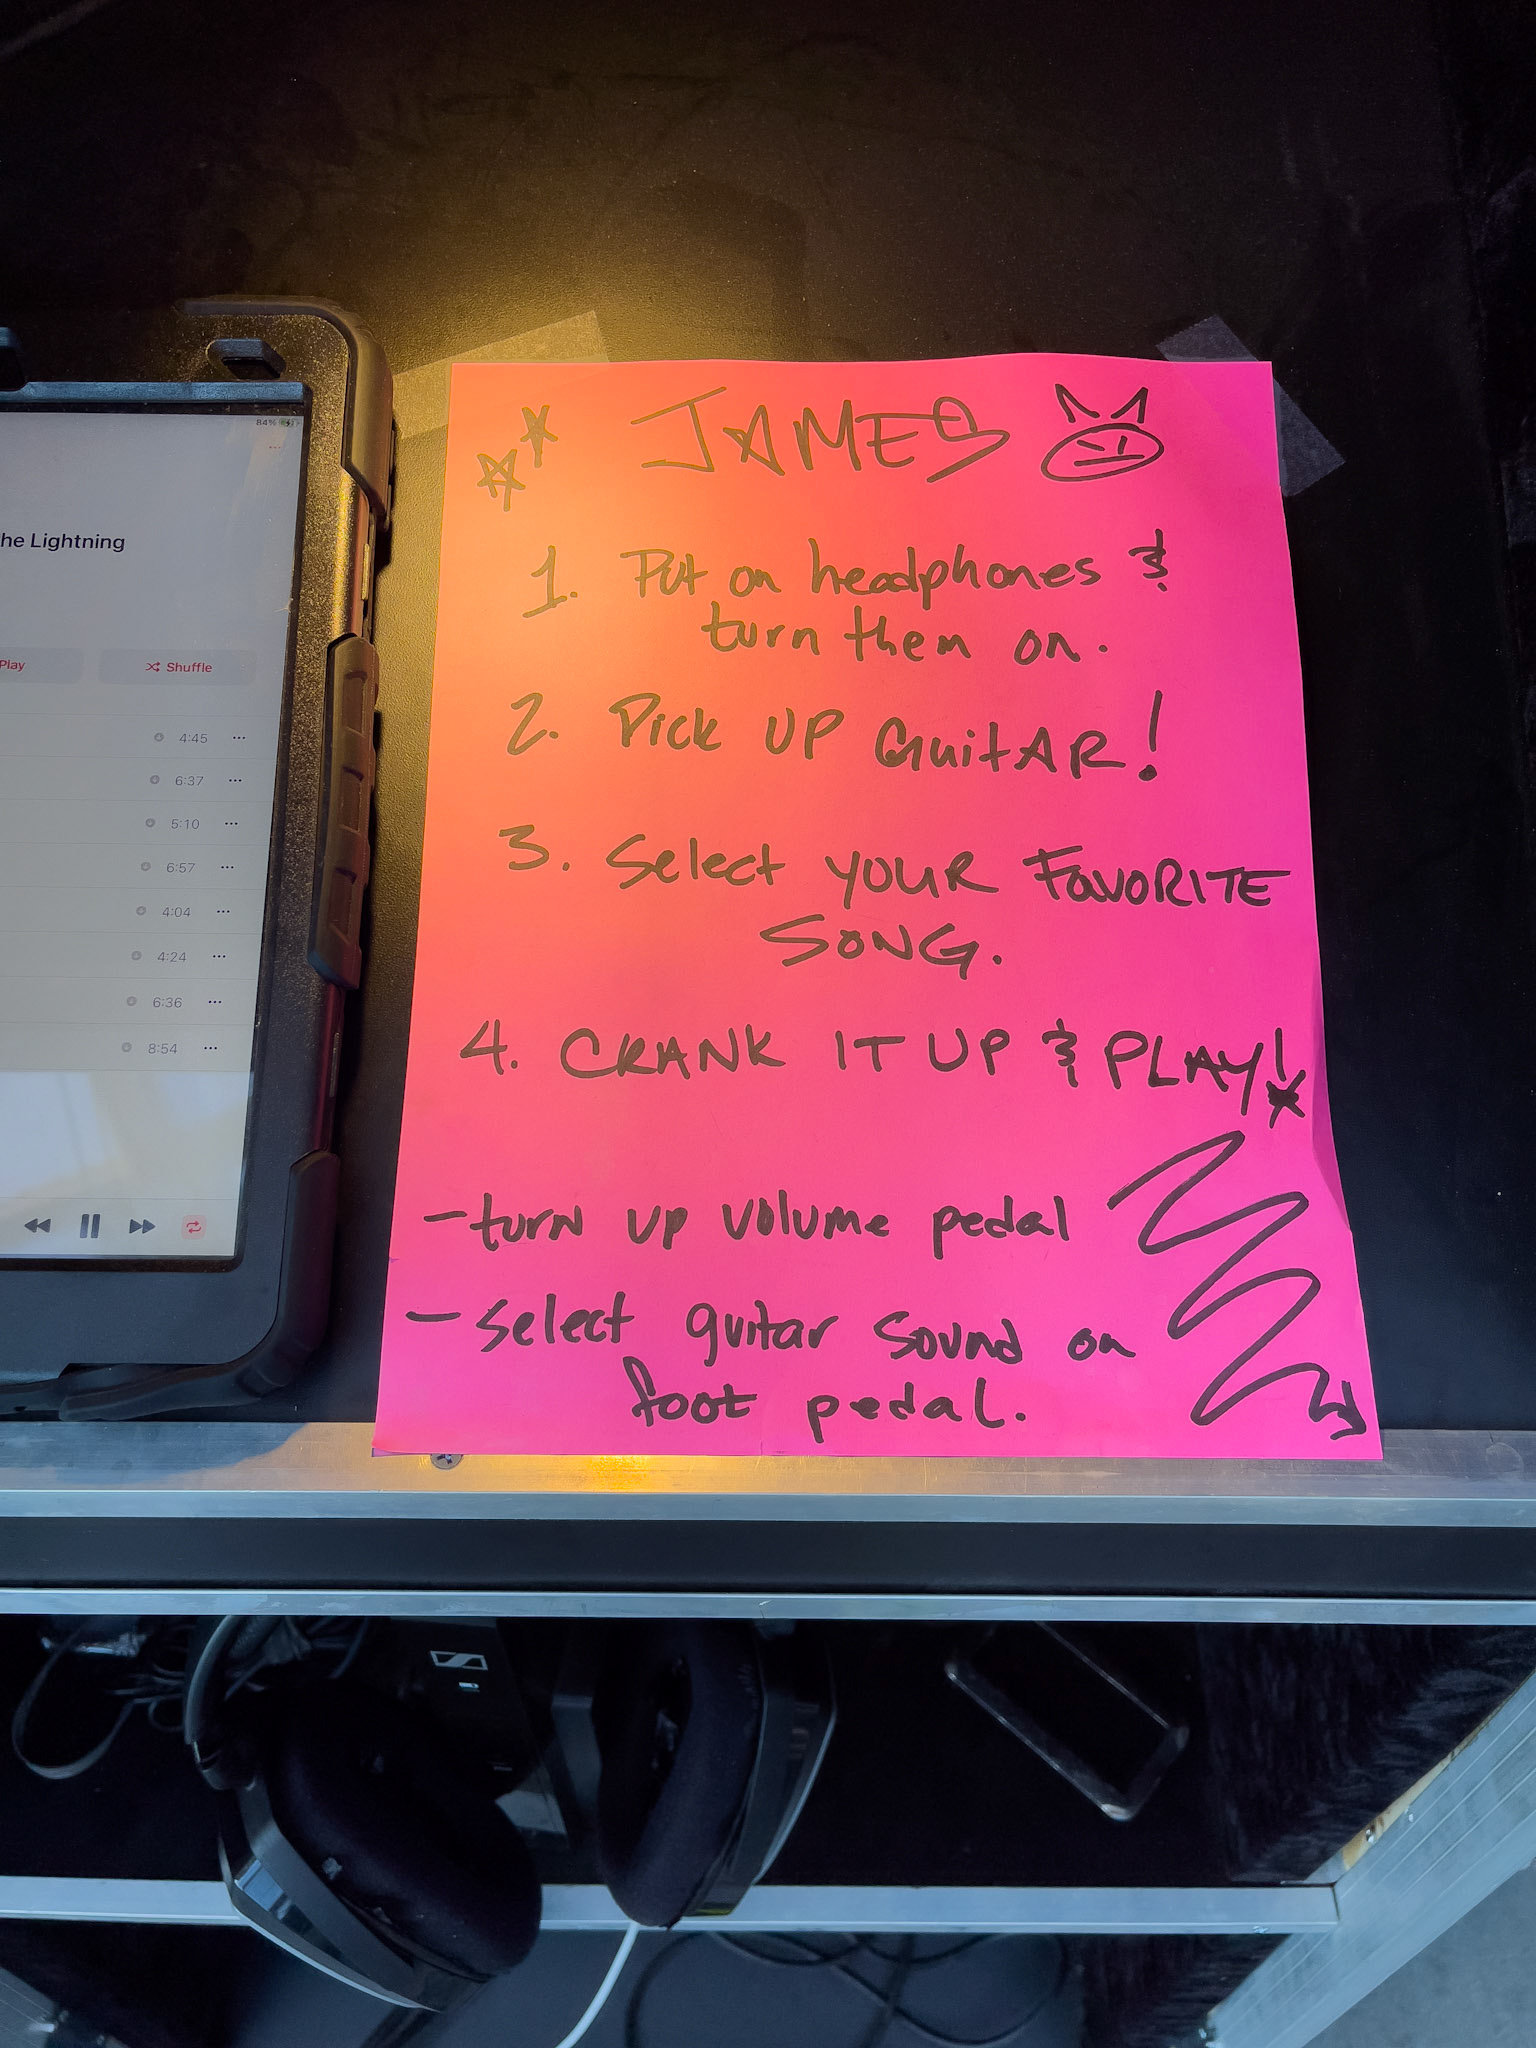 84%
he Lightning
Play
Shuffle
4:45
6:37
5:10
6:57
4:04
4:24
6:36
8:54
JAMES
1. Put on headphones &
turn them on.
2. Pick UP GuitAR!
3. Select YOUR FAVORITE
SONG.
4. CRANK IT UP & PLAY!
- turn up volume pedal
- select guitar sound on
foot pedal.